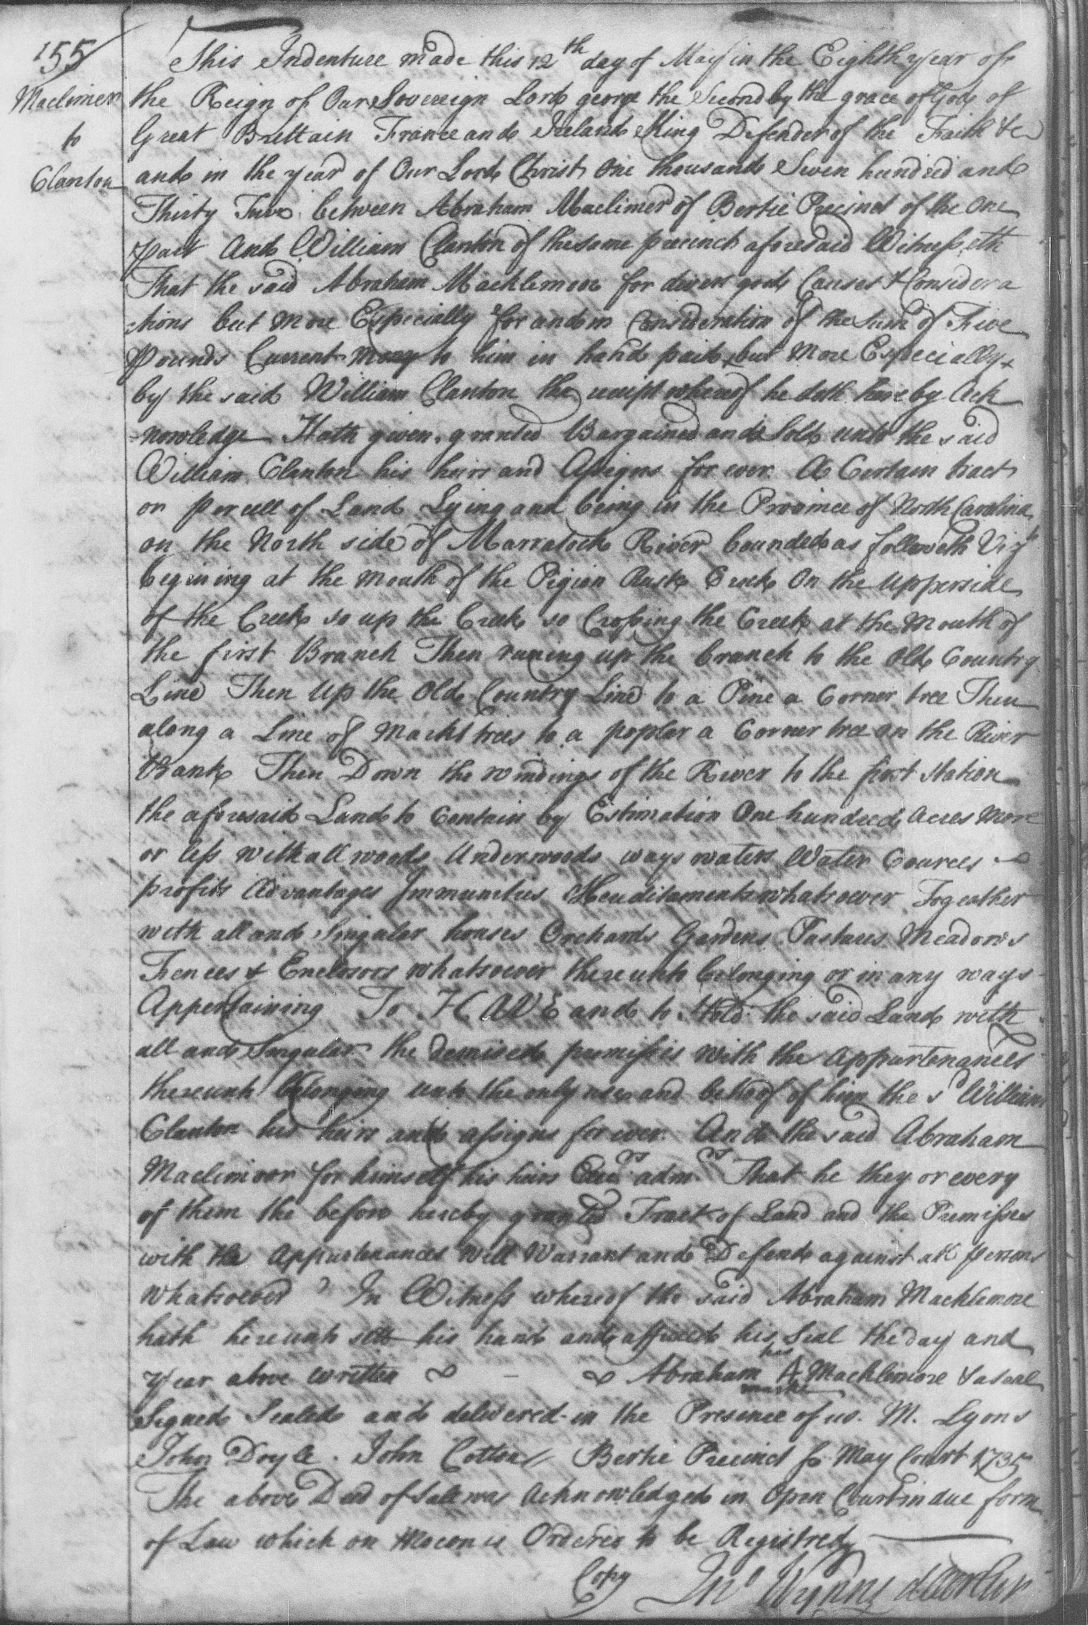 155
Maclimer
to
Clanton
This Indenture made this 12th day of May in the Eighth year of
the Reign of Our Sovereign Lord george the Second by the grace of God of
Great Brittain France and Ireland King Defender of the Faith &c
and in the year of Our Lord Christ One thousand Seven hundred and
Thirty five between Abraham Maclimer of Bertie Precinct of the One
part And William Clanton of the same precinct aforesaid Witnesseth
That the said Abraham Macklemore for divers good Causes & Considera
tions but More Especially for and in Consideration of the Sum of Five
Pounds Current Money to him in hand paid but More Especially
by the said William Clanton the receipt whereof he doth hereby Ack
nowledge Hath given, granted Bargained and Sold unto the said
William Clanton his heirs and Assigns for ever A Certain tract
or parcell of Land Lying and being in the Province of North Carolina
on the North side of Marratock River bounded as followeth Vizt
begining at the mouth of the Pigion Creek On the upperside
of the Creek so up the Creek so Crossing the Creek at the Mouth of
the first Branch Then runing up the branch to the Old Country
Line Then Up the Old Country Line to a Pine a Corner tree Then
along a Line of Markt trees to a poplar a Corner tree on the River
Bank Then Down the windings of the River to the first Station
the aforesaid Land to Contain by Estimation One hundred Acres More
or less with all woods Underwoods ways waters Water Cources
profits Advantages Immunities Hereditaments whatsoever Togeather
with all and Singular houses Orchards Gardens Pastures Meadows
Fences & Enclosors whatsoever thereunto belonging or in any ways
Appertaining To HAVE and to Hold the said Land with
all and Singular the demised premisses with the Appurtenances
thereunto belonging unto the only use and behoof of him the sd William
Clanton his heirs and assigns for ever. And the said Abraham
Maclimoor for himself his heirs Exrs admrs That he they or every
of them the before hereby granted Tract of Land and the Premisses
with the Appurtenances Will Warrant and Defend against all persons
whatsoever In Witness whereof the said Abraham Macklimore
hath hereunto sett his hand and affixed his Seal the day and
year above written Abraham his A marke Macklimore & a seal
Signed Sealed and delivered in the Presence of us. M. Lyons
John Doyle. John Cotton Bertie Precinct ss May Court 1735
The above Deed of Sale was Acknowledged in Open Court in due form
of Law which on Mocon is Ordered to be Registred
Copy Jno Wynns